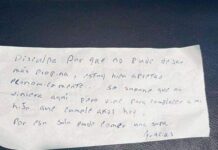 Disculpa Por que no pude dejar
más propina, estoy muy apretas
económicamente. Se supone que no
viniera aquí pero vine para complacer a mi
hijo que cumple años hoy
Por eso solo pude comer una sopa
Gracias